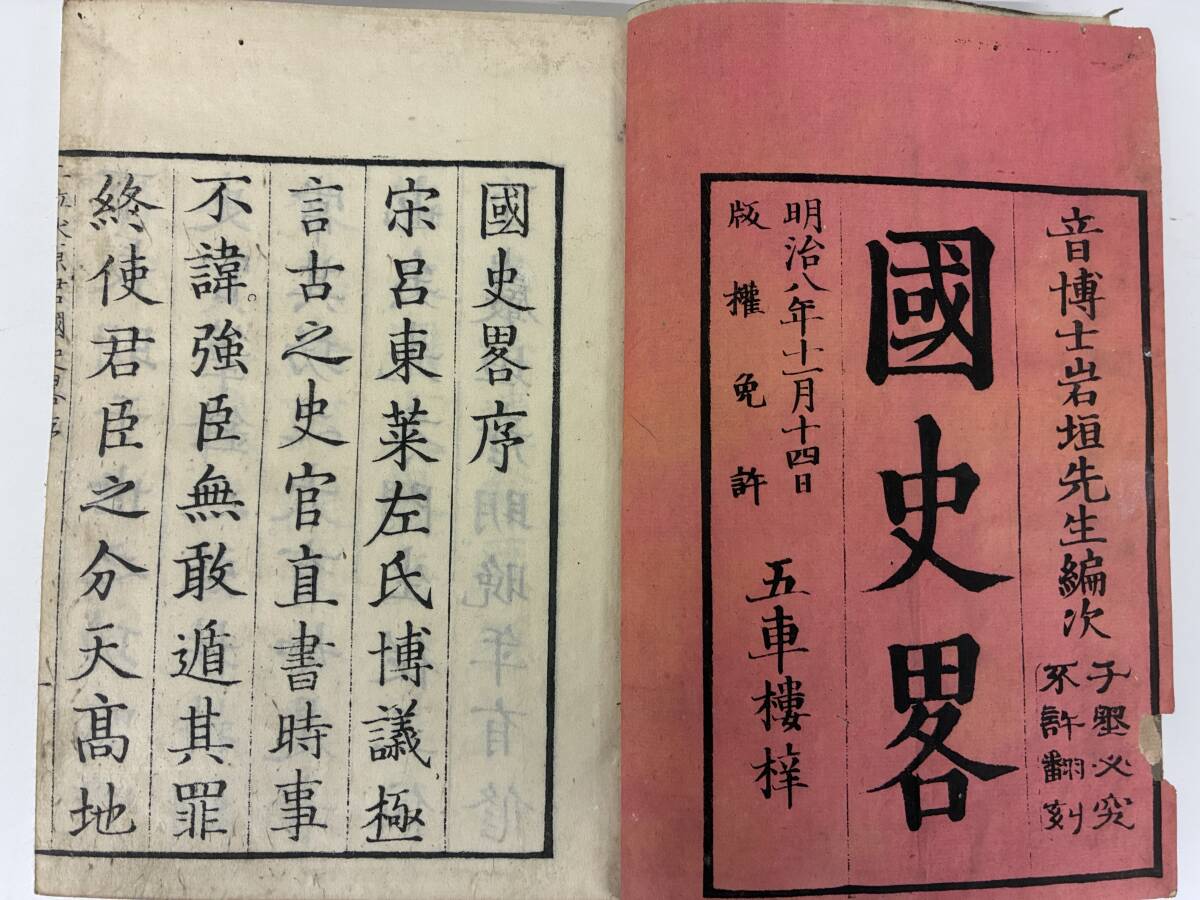 音博士岩垣先生編次
千里必究
不許翻刻
國史畧
明治八年十一月十四日
版權免許
五車樓梓
國史畧序
宋呂東萊左氏博議極
言古之史官直書時事
不諱強臣無敢遁其罪
終使君臣之分天高地